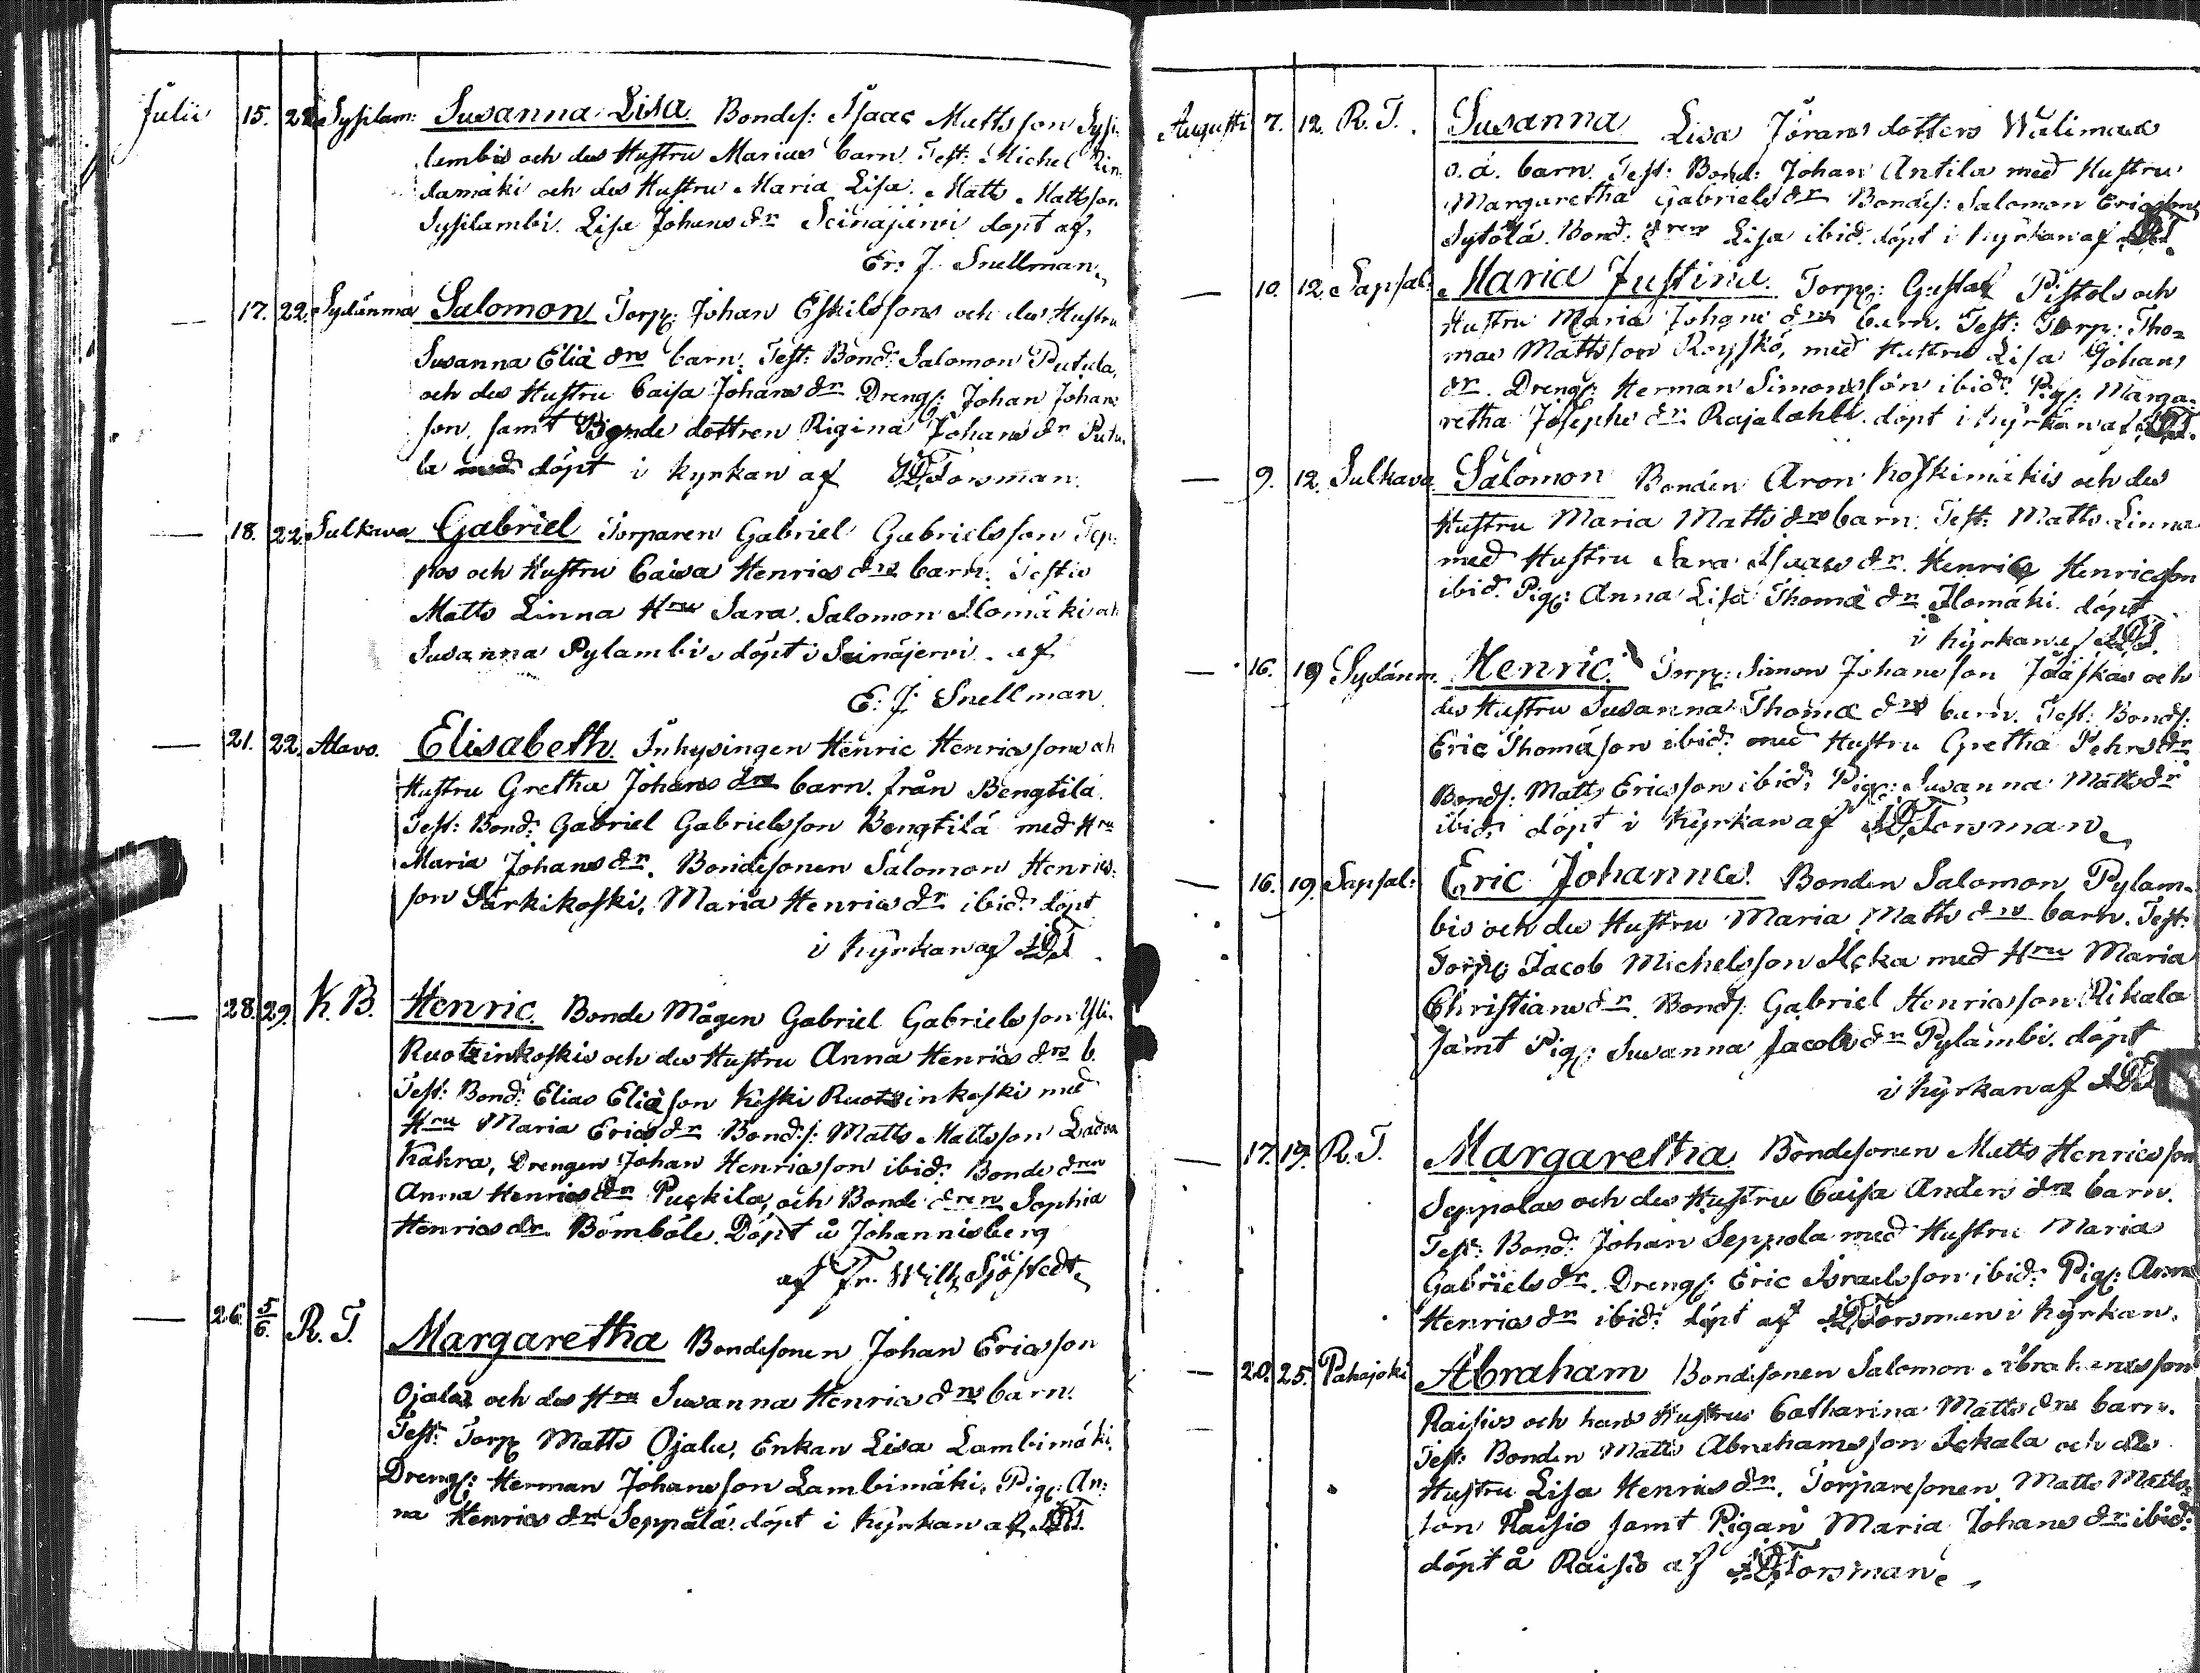 Julii 15. 22. Sysilam: Susanna Lisa. Bondes: Isaac Mattsson Sysi-
lambis och des Hustru Marias barn. Test: Michel Rin-
damäki och des Hustru Maria Lisa. Matts Mattsson
Sysilambi. Lisa Johans dr Seinäjärvi döpt af
Er: J. Snellman
— 17. 22. Sydänma Salomon Torp: Johan Eskilssons och des Hustru
Susanna Eliæ drs barn. Test: Bond: Salomon Putula,
och des Hustru Caisa Johans dr Drengs: Johan Johans
son, samt Bonde dottren Rigina Johans dr Putu-
la döpt i kyrkan af Forsman.
— 18. 22. Sulkava Gabriel Torparen Gabriel Gabrielsson Sep-
pos och Hustru Caisa Henrics drs barn. Testis
Matts Linna Hru Sara. Salomon Alomäki och
Susanna Pylambi, döpt i Seinäjervi af
E: J. Snellman
— 21. 22. Alavo. Elisabeth. Inhysingen Henric Henricssons och
Hustru Gretha Johans drs barn. från Bengtilä.
Test: Bond: Gabriel Gabrielsson Bengtilä med Hru
Maria Johans dr. Bondesonen Salomon Henrics-
son Särkikoski. Maria Henrics dr ibid: döpt
i kyrkan af
— 28. 29. K. B. Henric. Bonde Mågen Gabriel Gabrielsson Yli-
Ruotzinkoskis och des Hustru Anna Henrics drs b.
Test: Bond: Elias Eliæson Keski Ruotzinkoski med
Hru Maria Erics dr Bonds: Matts Mattsson Ladva
Kahra, Drengen Johan Henricsson ibid: Bonde dren
Anna Henrics dr Puskila, och Bonde dren Sophia
Henrics dr. Bömböle. Döpt å Johannisberg
af Fr. Wilh. Sjöstedt
— 26. 5/6. R. T. Margaretha Bondesonen Johan Ericsson
Ojalas och des Hru Susanna Henrics drs barn.
Test: Torp Matts Ojala, Enkan Lisa Lambimäki.
Drengs: Herman Johansson Lambimäki, Pig: An-
na Henrics dr Seppälä. döpt i kyrkan af
Augusti 7. 12. R. T. Susanna Lisa Jörans dotters Wälimaa
o. ä. barn. Test: Bond: Johan Antila med Hustru
Margaretha Gabriels dr Bondes: Salomon Ericsson
Sytölä. Bond: dren Lisa ibid. döpt i kyrkan af
— 10. 12. Sapsal: Maria Justina. Torp: Gustaf Pistols och
Hustru Maria Johans drs barn. Test: Torp: Tho-
mas Mattsson Röyskö, med Hustru Lisa Johans
dr. Drengs: Herman Simonsson ibid: Pigs: Marga-
retha Josephs dr Rajalahti. döpt i kyrkan af
— 9. 12. Sulkava Salomon Bonden Aron Koskimäkis och des
Hustru Maria Matts drs barn. Test: Matts Linna
med Hustru Sara Isaacs dr. Henric Henricsson
ibid. Pig: Anna Lisa Thomæ dr Alomäki. döpt
i kyrkan af
— 16. 19 Sydänm. Henric. Torp: Simon Johansson Jääskas och
des Hustru Susanna Thomæ drs barn. Test: Bonds:
Eric Thomæson ibid: med Hustru Gretha Pehrs dr
Bonds: Matts Ericsson ibid: Pig: Susanna Matts dr
ibid: döpt i kyrkan af Forsman
— 16. 19. Sapsal: Eric Johannes. Bonden Salomon Pylam-
bis och des Hustru Maria Matts drs barn. Test:
Torp: Jacob Michelsson med Hru Maria
Christians dr. Bonds: Gabriel Henricsson Rikala
samt Pigs: Susanna Jacobs dr Pylambi. döpt
i kyrkan af
— 17. 19. R. T. Margaretha. Bondesonen Matts Henricsson
Seppolas och des Hustru Caisa Anders drs barn.
Test: Bond: Johan Seppola med Hustru Maria
Gabriels dr. Drengs: Eric Israelsson ibid: Pigs: Anna
Henrics dr ibid: döpt af Forsman i kyrkan.
— 20. 25. Pahajoki Abraham Bondesonen Salomon Abrahamsson
Raisios och hans Hustrus Catharina Matts drs barn.
Test: Bonden Matts Abrahamsson Iskala och des
Hustru Lisa Henrics dr. Torparesonen Matts Matts-
son Raisio samt Pigan Maria Johans dr ibid:
döpt å Raisio af Forsman